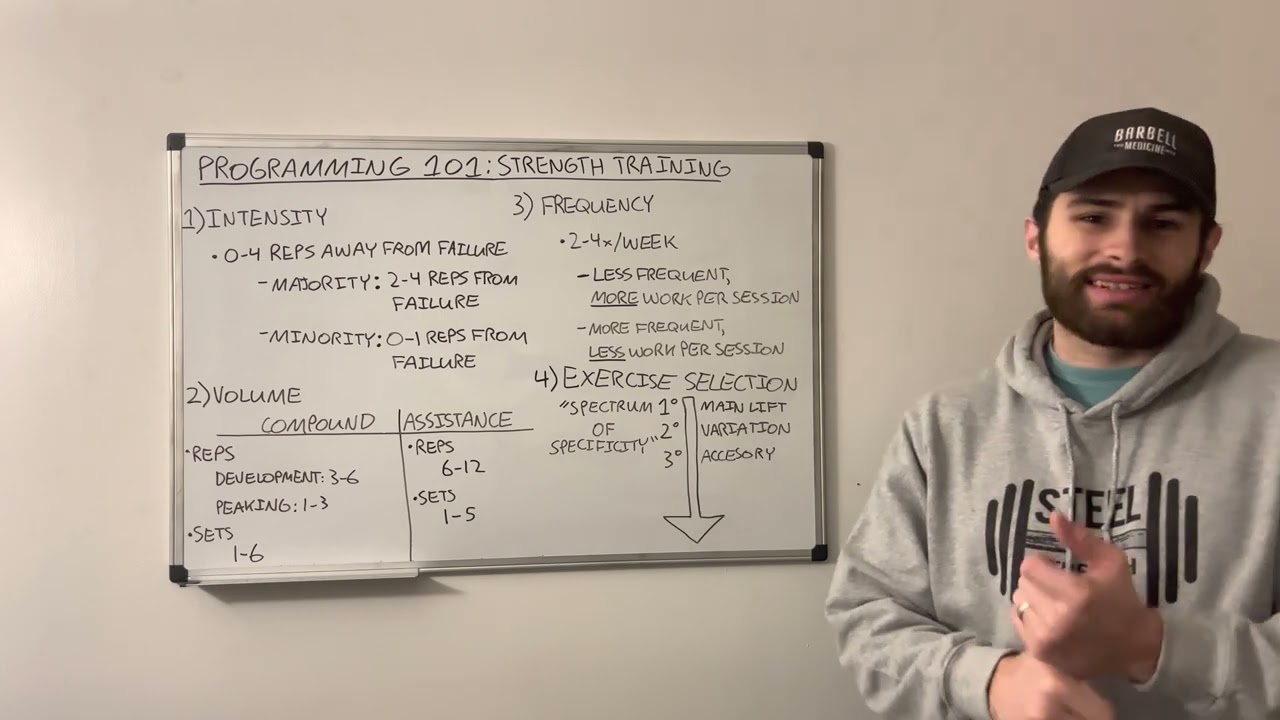 PROGRAMMING 101: STRENGTH TRAINING
1) INTENSITY
• 0-4 REPS AWAY FROM FAILURE
- MAJORITY: 2-4 REPS FROM
FAILURE
- MINORITY: 0-1 REPS FROM
FAILURE
2) VOLUME
COMPOUND
ASSISTANCE
• REPS
DEVELOPMENT: 3-6
PEAKING: 1-3
• SETS
1-6
• REPS
6-12
• SETS
1-5
3) FREQUENCY
• 2-4x/WEEK
- LESS FREQUENT,
MORE WORK PER SESSION
- MORE FREQUENT,
LESS WORK PER SESSION
4) EXERCISE SELECTION
"SPECTRUM 1° MAIN LIFT
OF 2° VARIATION
SPECIFICITY" 3° ACCESORY
BARBELL
MEDICINE
STEEL